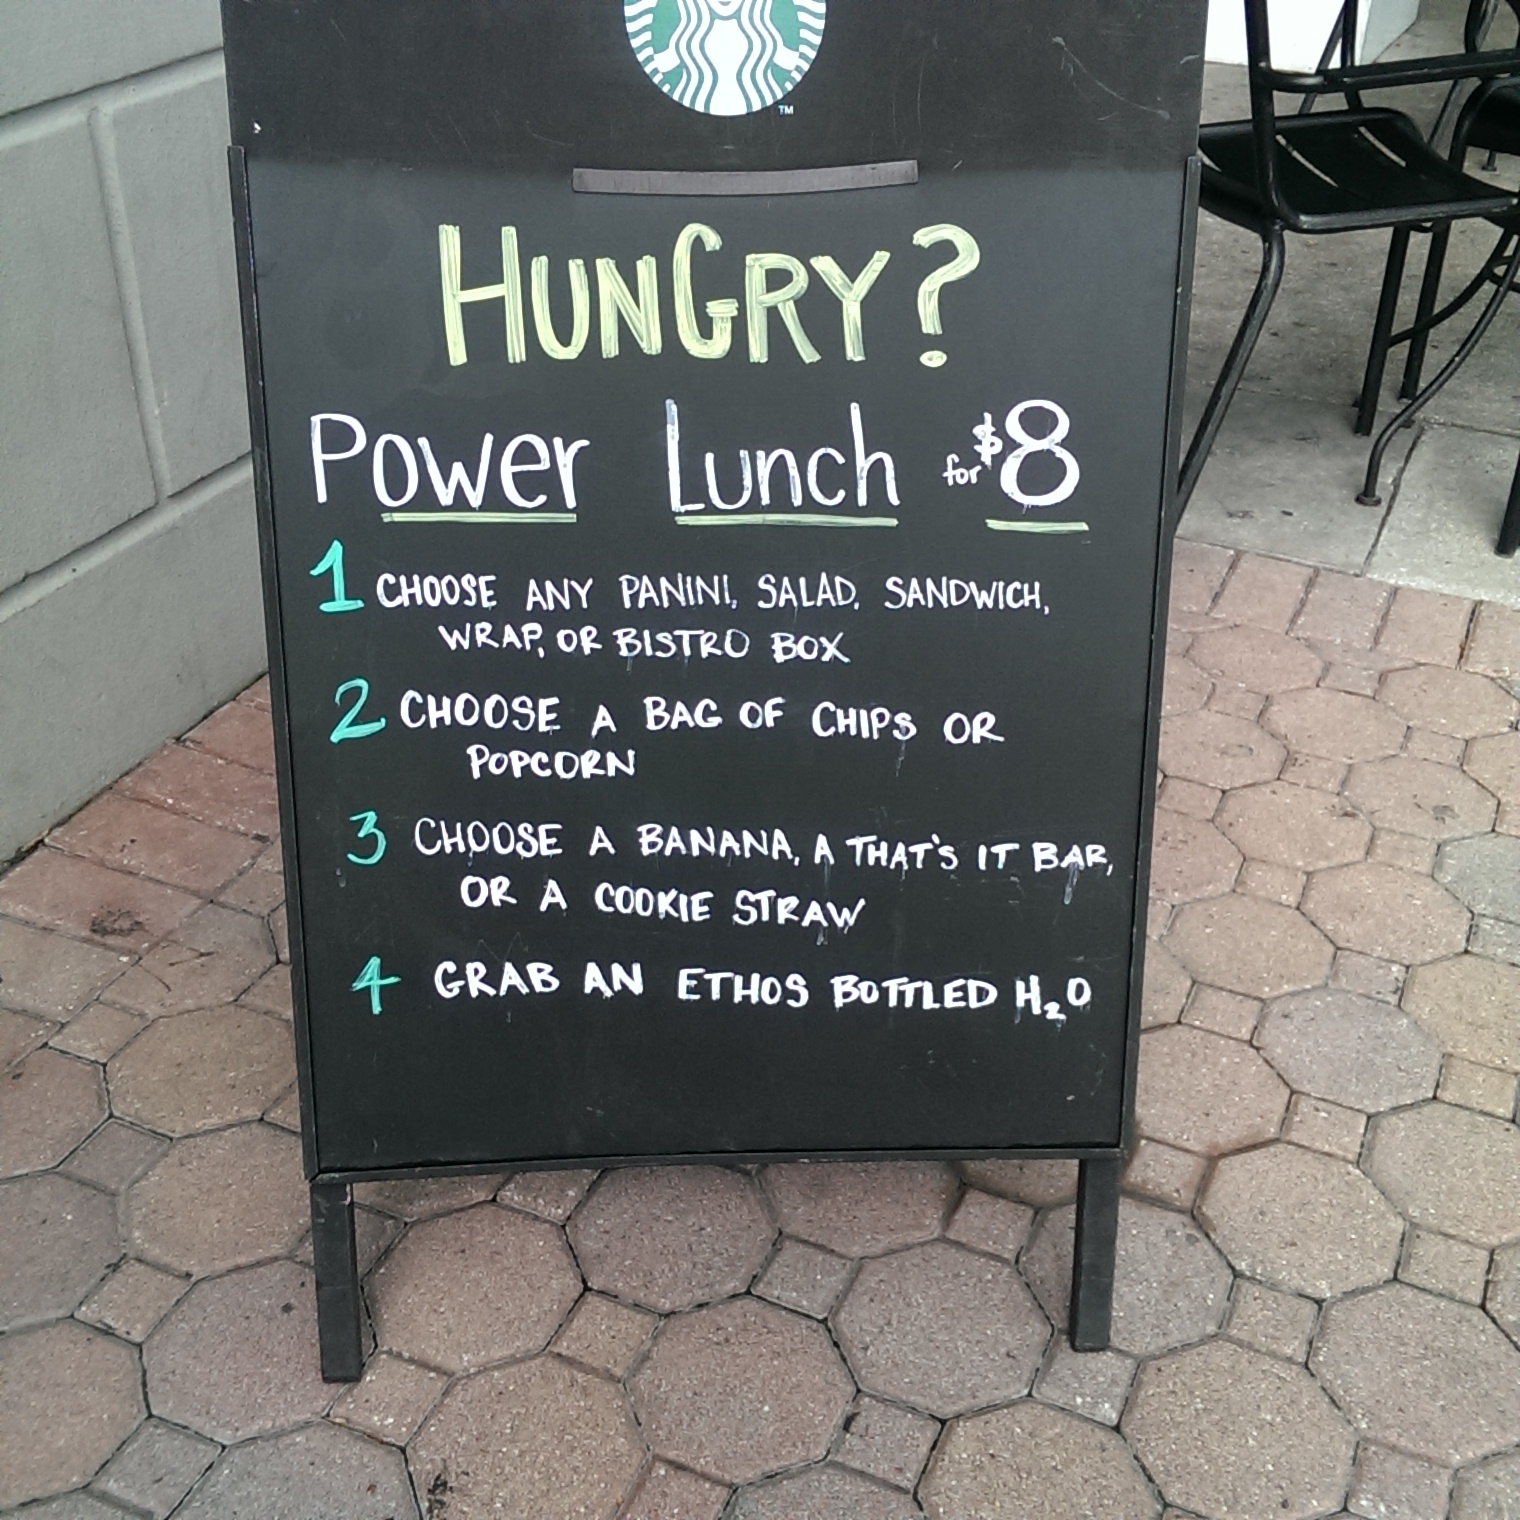 TM
HUNGRY?
Power Lunch for $8
1 CHOOSE ANY PANINI, SALAD, SANDWICH,
WRAP, OR BISTRO BOX
2 CHOOSE A BAG OF CHIPS OR
POPCORN
3 CHOOSE A BANANA, A THAT'S IT BAR,
OR A COOKIE STRAW
4 GRAB AN ETHOS BOTTLED H₂O